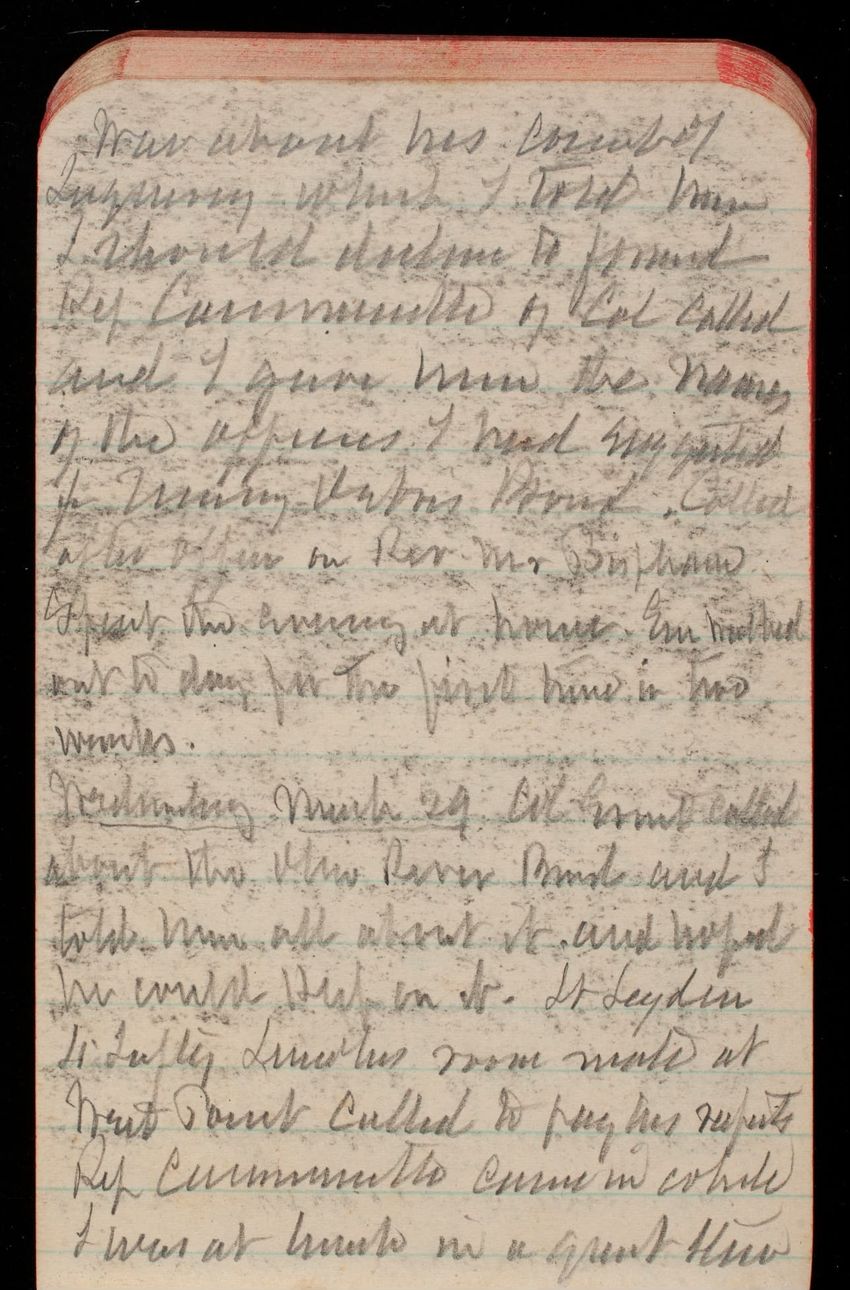 War about his Court of
Inquiry which I told him
I should decline to forward
Rep Caminetti of Cal called
and I gave him the names
of the officers I had suggested
for Mining Debris Board. Called
after office on Rev Mr Bispham
Spent the evening at home. Em walked
out to day for the first time in two
weeks.
Wednesday March 29 Col Ernst called
about the Ohio River Board and I
told him all about it and hoped
he could on it. Lt Leyden
Lt room mate at
West Point called to pay his respects
Rep Caminetti came in while
I was at lunch in a great stew